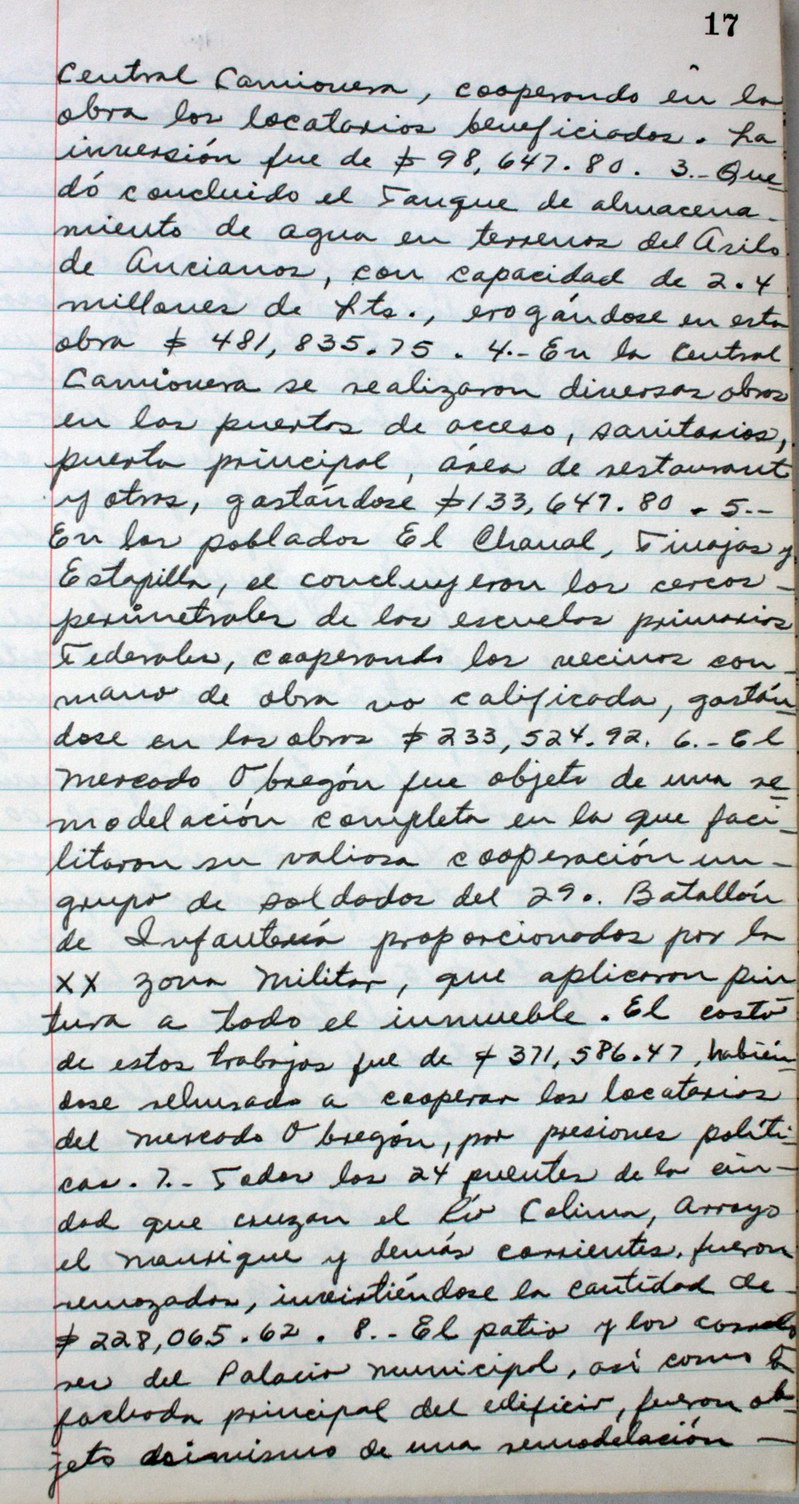 17
Central Camionera, cooperando en la
obra los locatarios beneficiados. La
inversión fue de $ 98,647.80. 3.- Que
dó concluido el Tanque de almacena-
miento de agua en terrenos del Asilo
de Ancianos, con capacidad de 2.4
millones de Lts., erogándose en esta
obra $ 481,835.75. 4.- En la Central
Camionera se realizaron diversas obras
en las puertas de acceso, sanitarios,
puerta principal, área de restaurant
y otras, gastándose $133,647.80. 5.-
En los poblados El Chanal, Tinajas y
Estapilla, se concluyeron los cercos-
perimetrales de las escuelas primarias
Federales, cooperando los vecinos con-
mano de obra no calificada, gastán
dose en las obras $ 233,524.92. 6.- El
Mercado Obregón fue objeto de una re
modelación completa en la que faci-
litaron su valiosa cooperación un-
grupo de soldados del 29o. Batallón
de Infantería proporcionados por la
XX zona Militar, que aplicaron pin
tura a todo el inmueble. El costo
de estos trabajos fue de $ 371,586.47, habién-
dose rehusado a cooperar los locatarios
del Mercado Obregón, por presiones políti-
cas. 7.- Todos los 24 puentes de la ciu-
dad que cruzan el Río Colima, Arroyo
el Manrique y demás corrientes, fueron
remozados, invirtiéndose la cantidad de-
$ 228,065.62. 8.- El patio y los corredo
res del Palacio Municipal, así como la
fachada principal del edificio, fueron ob-
jeto asimismo de una remodelación-